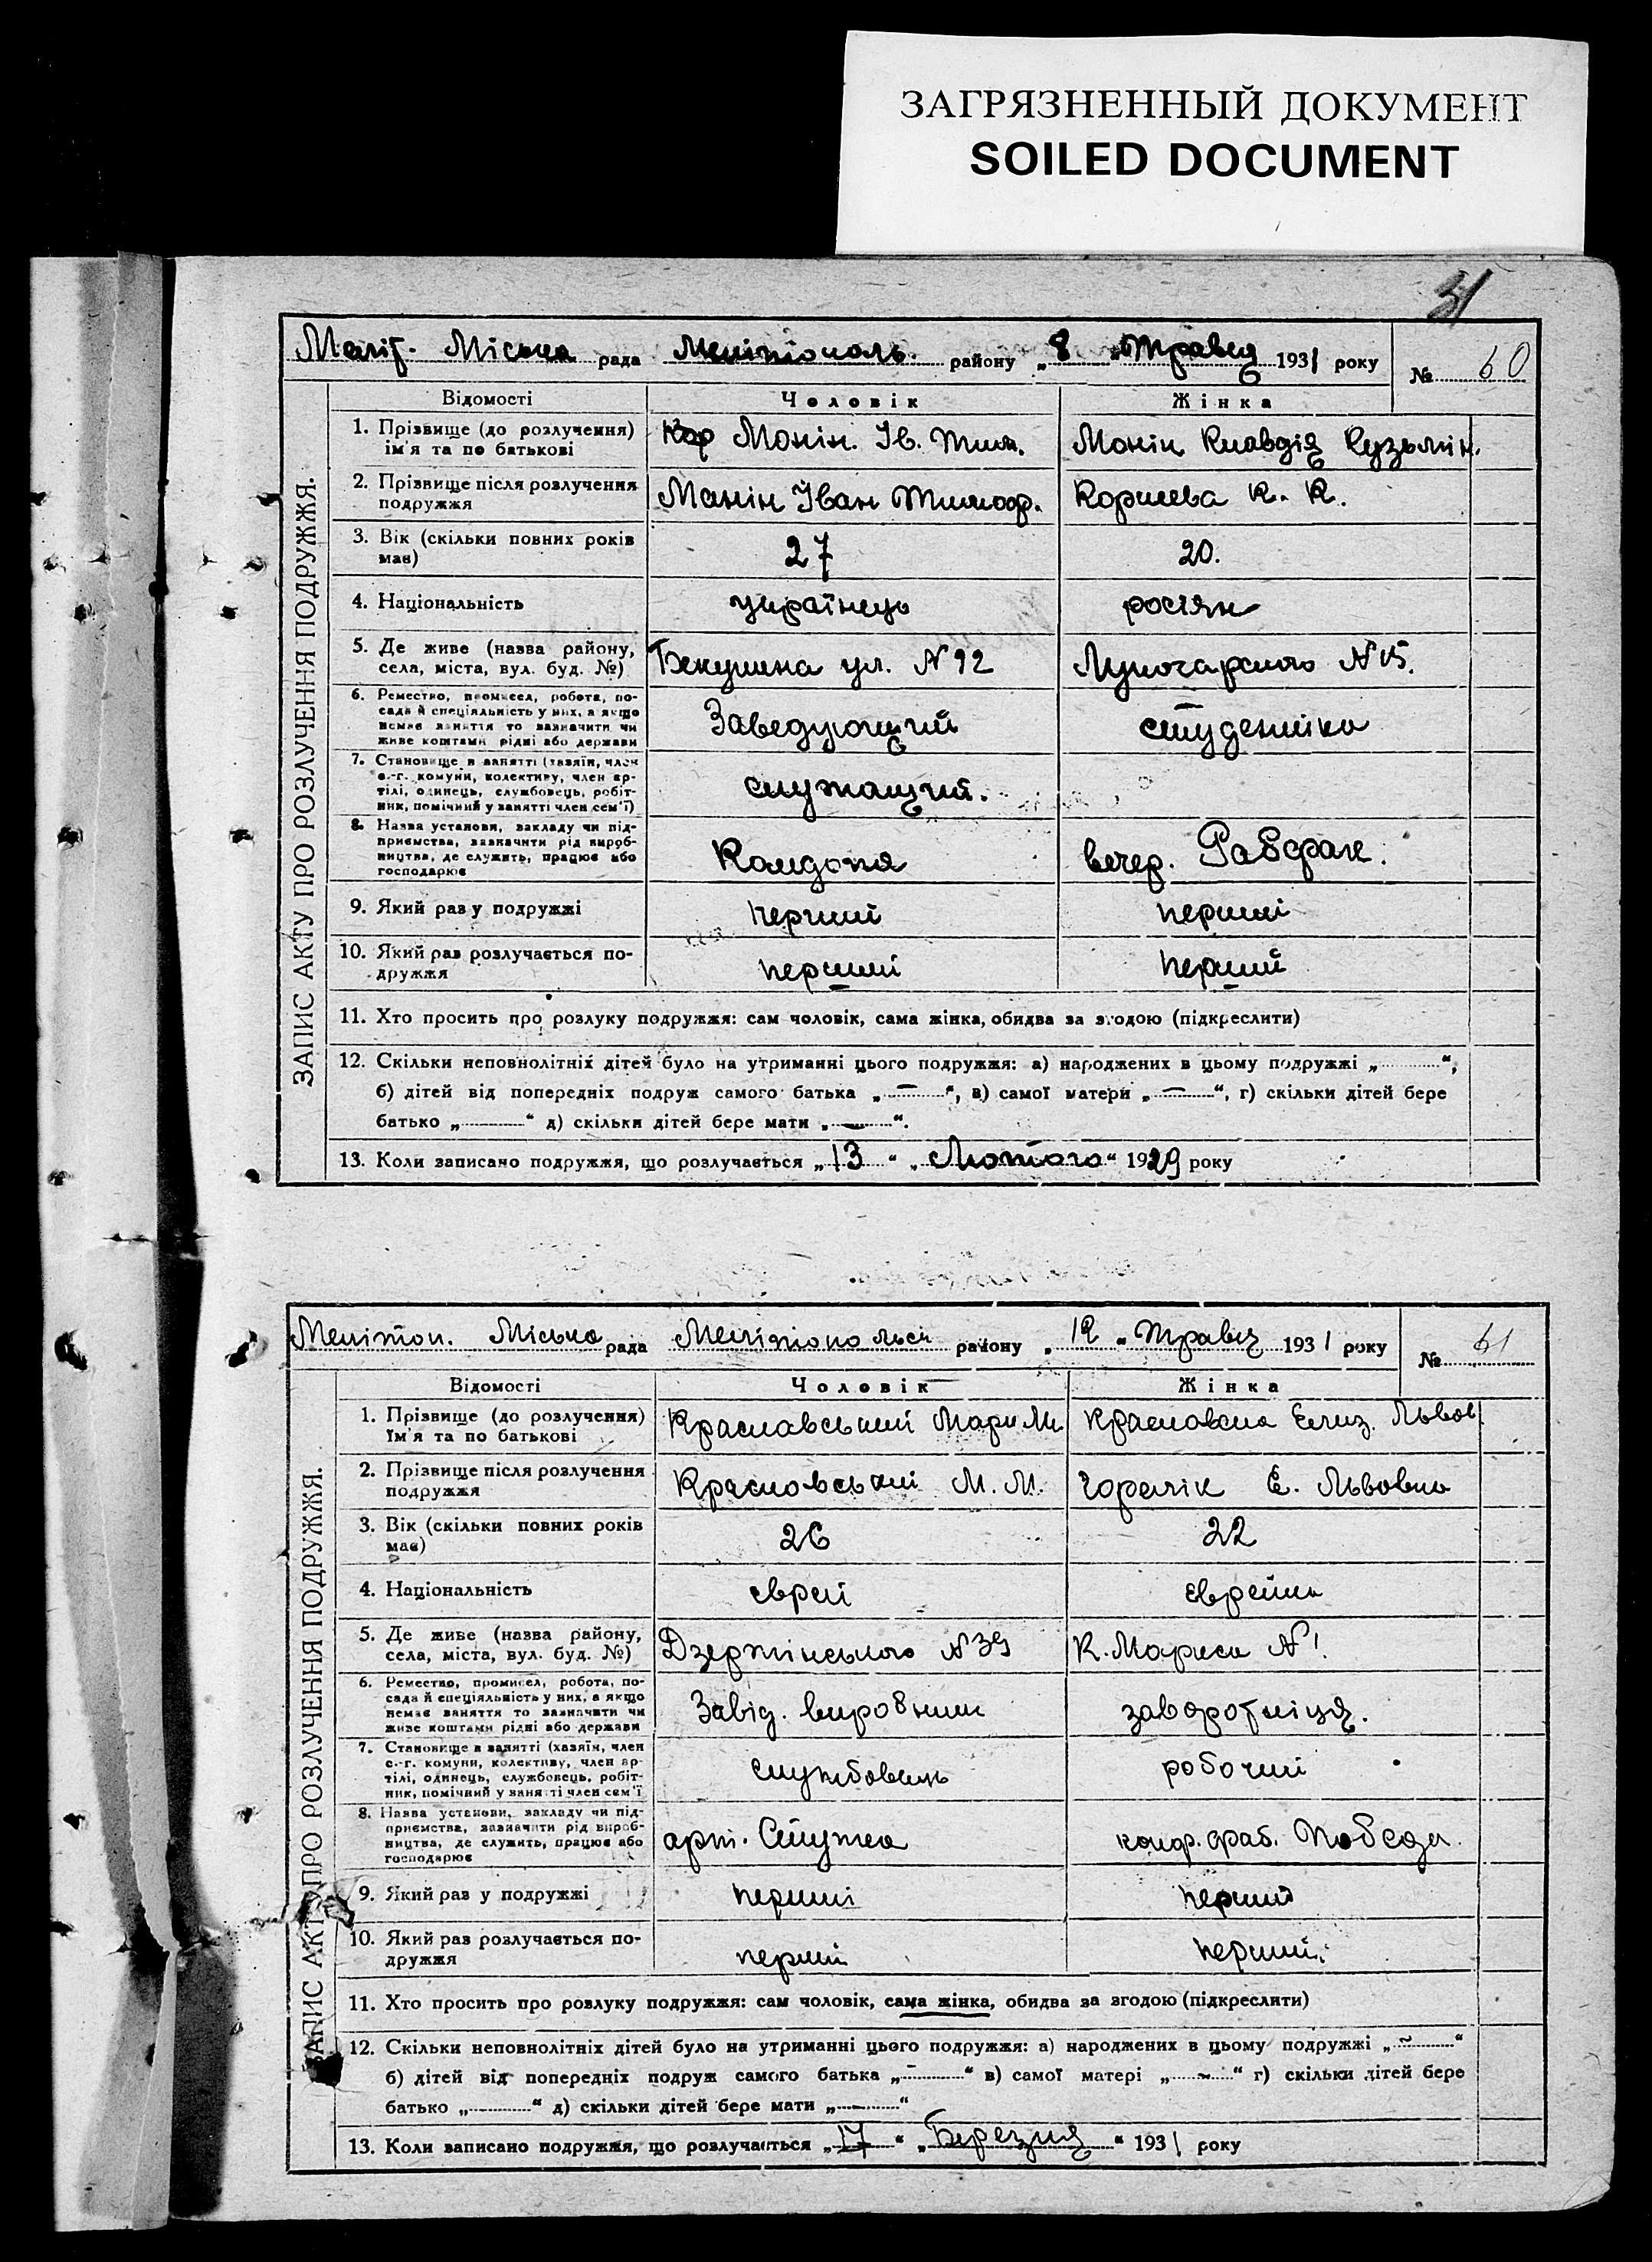 ЗАГРЯЗНЕННЫЙ ДОКУМЕНТ
SOILED DOCUMENT
31
Меліт. Міська рада Мелітополь. району „ 8 „ Травня 1931 року № 60
ЗАПИС АКТУ ПРО РОЗЛУЧЕННЯ ПОДРУЖЖЯ.
Відомості Чоловік Жінка
1. Прізвище (до розлучення) ім'я та по батькові Кор Монін. Ів. Тим. Монін Клавдія Кузьмін.
2. Прізвище після розлучення подружжя Манін Іван Тимоф. Корнева К. К.
3. Вік (скільки повних років має) 27 20.
4. Національність українець росіян
5. Де живе (назва району, села, міста, вул. буд. №) ул. № 92 Луночарського № 15.
6. Ремество, промисел, робота, посада й спеціяльність у них, а якщо немає заняття то зазначити чи живе коштами рідні або держави Заведующий студентка
7. Становище в занятті (хазяїн, член с.-г. комуни, колективу, член артілі, одинець, службовець, робітник, помічний у занятті член сем'ї) служащий.
8. Назва установи, закладу чи підприємства, зазначити рід виробництва, де служить, працює або господарює вечер. Рабфак.
9. Який раз у подружжі перший перший
10. Який раз розлучається подружжя перший перший
11. Хто просить про розлуку подружжя: сам чоловік, сама жінка, обидва за згодою (підкреслити)
12. Скільки неповнолітніх дітей було на утриманні цього подружжя: а) народжених в цьому подружжі „............“,
б) дітей від попередніх подруж самого батька „ — “, в) самої матери „ — “, г) скільки дітей бере
батько „............“ д) скільки дітей бере мати „ — “.
13. Коли записано подружжя, що розлучається „ 13 “ „ Лютого “ 1929 року
Мелітоп. Міська рада Мелітопольськ району „ 12 „ Травня 1931 року № 61
ЗАПИС АКТУ ПРО РОЗЛУЧЕННЯ ПОДРУЖЖЯ.
Відомості Чоловік Жінка
1. Прізвище (до розлучення) Ім'я та по батькові Краснавський Марк М. Красновська Елиз. Львов
2. Прізвище після розлучення подружжя Красновський М. М. Горелік Е. Львовна
3. Вік (скільки повних років має) 26 22
4. Національність єврей єврейка
5. Де живе (назва району, села, міста, вул. буд. №) Дзержінського № 39 К. Маркса № 1
6. Ремество, промисел, робота, посада й спеціяльність у них, а якщо немає заняття то зазначити чи живе коштами рідні або держави Завід. виробник заворотніця.
7. Становище в занятті (хазяїн, член с.-г. комуни, колективу, член артілі, одинець, службовець, робітник, помічний у занятті член сем'ї службовець робочий
8. Назва установи, закладу чи підприємства, зазначити рід виробництва, де служить, працює або господарює арт. конф. фаб. Победа.
9. Який раз у подружжі перший перший
10. Який раз розлучається подружжя перший перший.
11. Хто просить про розлуку подружжя: сам чоловік, сама жінка, обидва за згодою (підкреслити)
12. Скільки неповнолітніх дітей було на утриманні цього подружжя: а) народжених в цьому подружжі „ ~ “
б) дітей від попередніх подруж самого батька „ — “ в) самої матері „ ~ “ г) скільки дітей бере
батько „............“ д) скільки дітей бере мати „ — “
13. Коли записано подружжя, що розлучається „ 17 “ „ Березня “ 1931 року